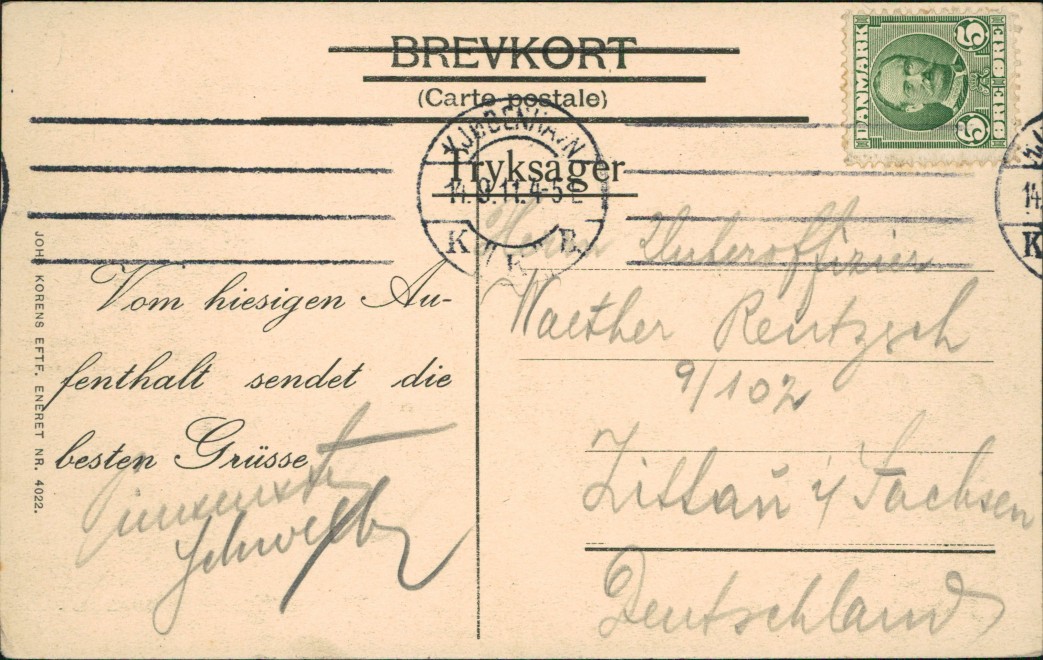 BREVKORT
(Carte postale)
DANMARK
5 ØRE
ØRE 5
KJØBENHAVN
14.9.11. 4-5E
K. B.
Tryksager
JOHS KORENS EFTF. ENERET NR. 4022.
Vom hiesigen Au-
fenthalt sendet die
besten Grüsse
Herrn Unteroffizier
Walther Rentzsch
9/102
Zittau i/ Sachsen
Deutschland